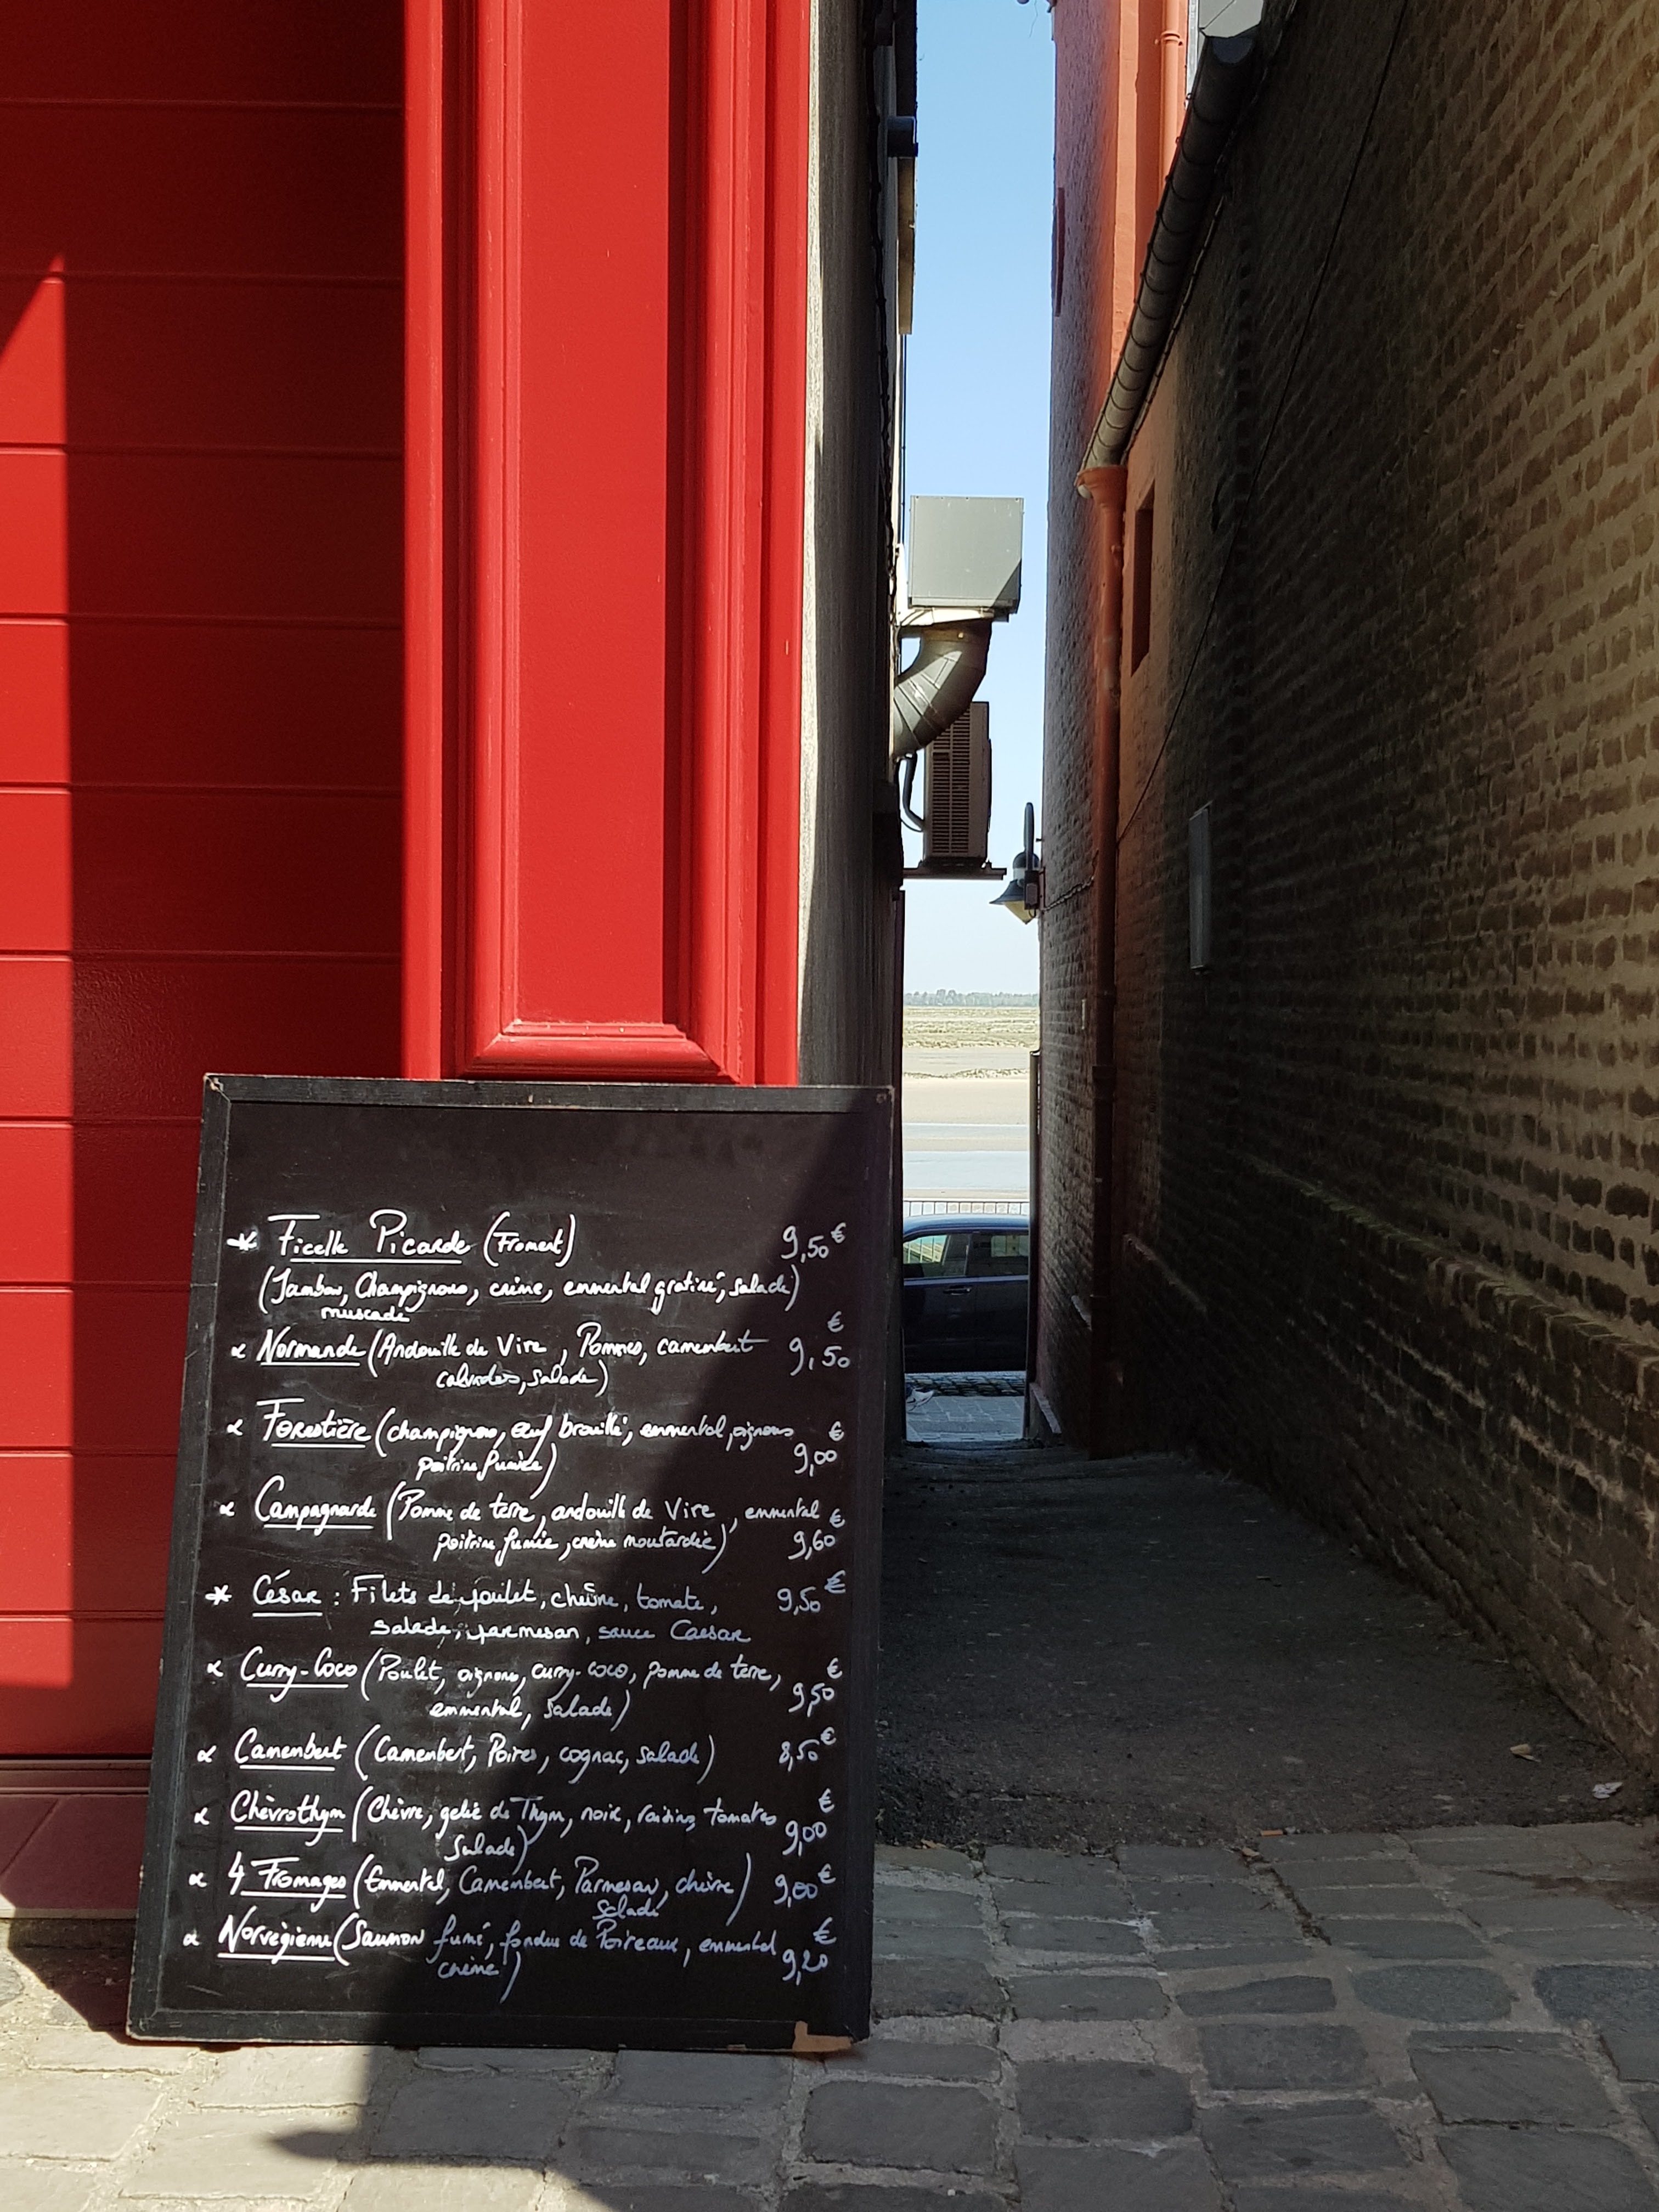 * Ficelle Picarde (Froment) 9,50 €
(Jambon, Champignons, crème, emmental gratiné, salade)
muscade
∝ Normande (Andouille de Vire, Pommes, camembert 9,50 €
calvados, salade)
∝ Forestière (champignons, œuf brouillé, emmental, oignons €
poitrine fumée) 9,00
∝ Campagnarde (Pomme de terre, andouille de Vire, emmental €
poitrine fumée, crème moutardée) 9,60
* César : Filets de poulet, chèvre, tomate, 9,50 €
salade, parmesan, sauce Caesar
∝ Curry-Coco (Poulet, oignons, curry-coco, pomme de terre, €
emmental, salade) 9,50
∝ Camembert (Camembert, Poires, cognac, salade) 8,50 €
∝ Chèvrothym (Chèvre, gelée de Thym, noix, raisins, tomates €
salade) 9,00
∝ 4 Fromages (Emmental, Camembert, Parmesan, chèvre) 9,00 €
salade
∝ Norvégienne (Saumon fumé, fondue de Poireaux, emmental €
crème) 9,20